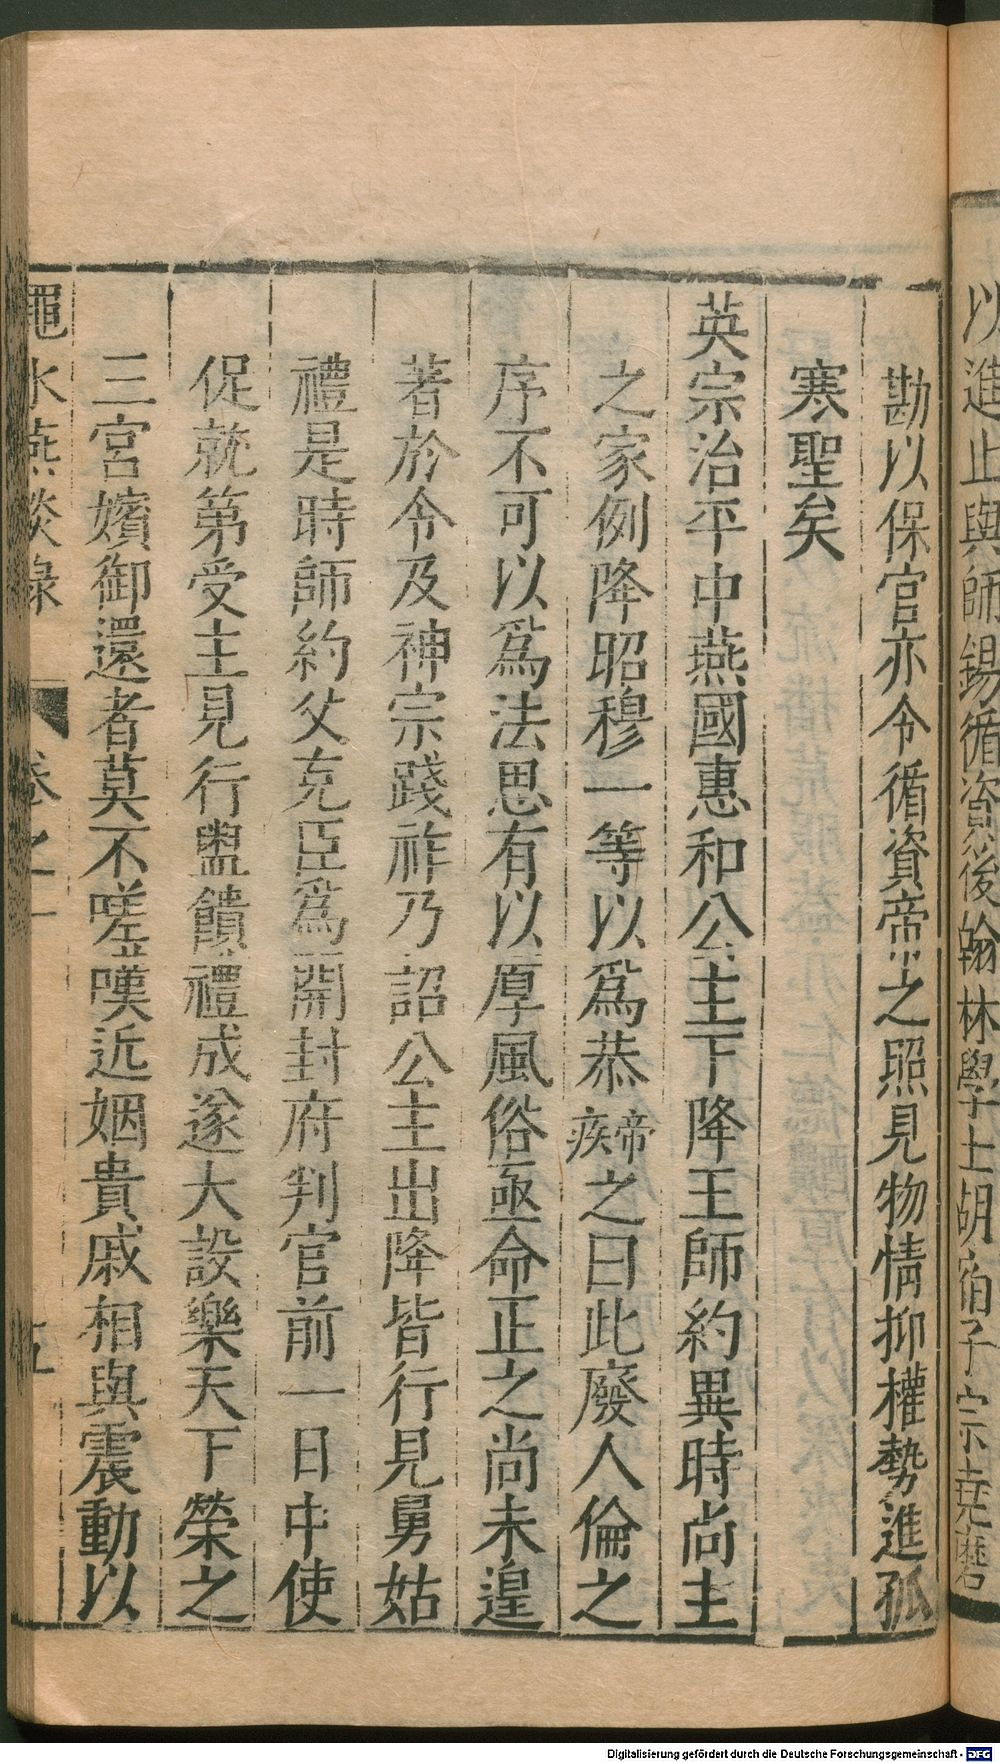 以進止與師錫循資後翰林學士胡宿子宗堯磨
勘以保官亦令循資帝之照見物情抑權勢進孤
寒聖矣
英宗治平中燕國惠和公主下降王師約異時尚主
之家例降昭穆一等以為恭帝疾之曰此廢人倫之
序不可以為法思有以厚風俗亟命正之尚未遑
著於令及神宗踐祚乃詔公主出降皆行見舅姑
禮是時師約父克臣為開封府判官前一日中使
促就第受主見行盥饋禮成遂大設樂天下榮之
三宮嬪御還者莫不嗟嘆近姻貴戚相與震動以
澠水燕談錄 卷之一 五
Digitalisierung gefördert durch die Deutsche Forschungsgemeinschaft - DFG